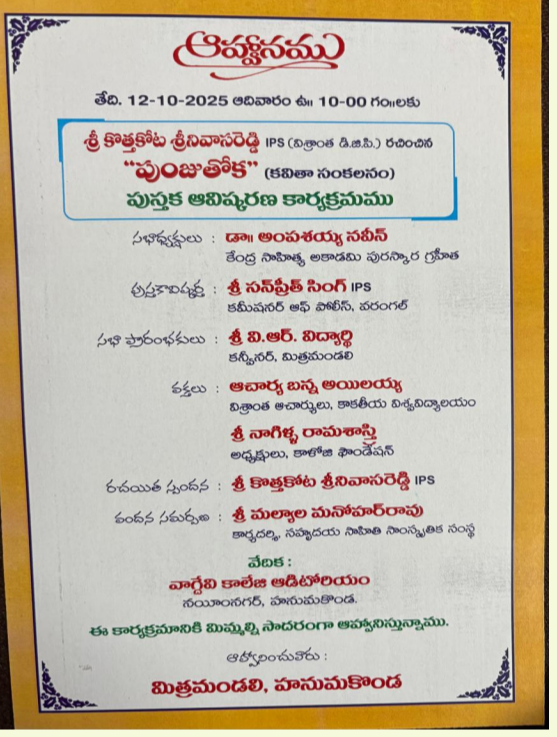 ఆహ్వానము
తేది. 12-10-2025 ఆదివారం ఉ॥ 10-00 గం॥లకు
శ్రీ కొత్తకోట శ్రీనివాసరెడ్డి IPS (విశ్రాంత డి.జి.పి.) రచించిన
“పుంజుతోక” (కవితా సంకలనం)
పుస్తక ఆవిష్కరణ కార్యక్రమము
సభాధ్యక్షులు : డా॥ అంపశయ్య నవీన్
కేంద్ర సాహిత్య అకాడమి పురస్కార గ్రహీత
పుస్తకావిష్కర్త : శ్రీ సన్‌ప్రీత్ సింగ్ IPS
కమీషనర్ ఆఫ్ పోలీస్, వరంగల్
సభా ప్రారంభకులు : శ్రీ వి.ఆర్. విద్యార్థి
కన్వీనర్, మిత్రమండలి
వక్తలు : ఆచార్య బన్న అయిలయ్య
విశ్రాంత ఆచార్యులు, కాకతీయ విశ్వవిద్యాలయం
శ్రీ నాగిళ్ళ రామశాస్త్రి
అధ్యక్షులు, కాళోజి ఫౌండేషన్
రచయిత స్పందన : శ్రీ కొత్తకోట శ్రీనివాసరెడ్డి IPS
వందన సమర్పణ : శ్రీ మల్యాల మనోహర్‌రావు
కార్యదర్శి, సహృదయ సాహితి సాంస్కృతిక సంస్థ
వేదిక :
వాగ్దేవి కాలేజి ఆడిటోరియం
నయీంనగర్, హనుమకొండ.
ఈ కార్యక్రమానికి మిమ్మల్ని సాదరంగా ఆహ్వానిస్తున్నాము.
ఆహ్వానించువారు :
మిత్రమండలి, హనుమకొండ